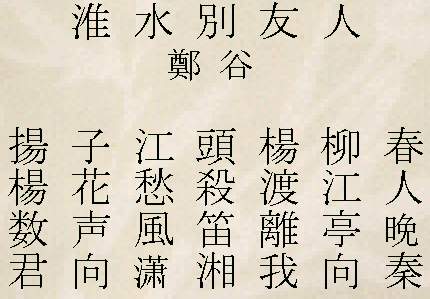 淮水別友人
鄭谷
揚子江頭楊柳春
楊花愁殺渡江人
数声風笛離亭晩
君向潇湘我向秦